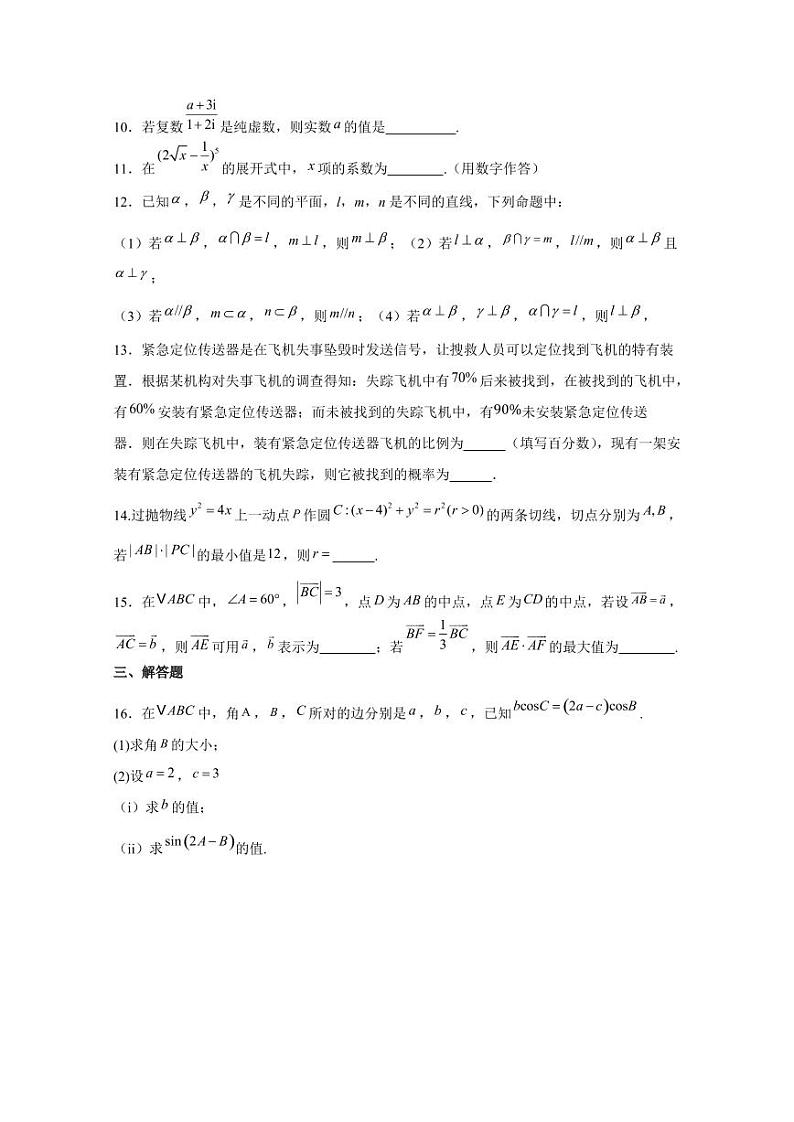 10．若复数 $\frac{a+3i}{1+2i}$ 是纯虚数，则实数 a 的值是__________.
11．在 $(2\sqrt{x}-\frac{1}{x})^5$ 的展开式中， x 项的系数为________.（用数字作答）
12．已知 α ， β ， γ 是不同的平面，l，m，n 是不同的直线，下列命题中：
（1）若 α ⊥ β ， α ⋂ β = l ， m ⊥ l ，则 m ⊥ β ；（2）若 l ⊥ α ， β ⋂ γ = m ， l//m ，则 α ⊥ β 且
α ⊥ γ ；
（3）若 α//β ， m ⊂ α ， n ⊂ β ，则 m//n ；（4）若 α ⊥ β ， γ ⊥ β ， α ⋂ γ = l ，则 l ⊥ β ，
13．紧急定位传送器是在飞机失事坠毁时发送信号，让搜救人员可以定位找到飞机的特有装
置．根据某机构对失事飞机的调查得知：失踪飞机中有 70% 后来被找到，在被找到的飞机中，
有 60% 安装有紧急定位传送器；而未被找到的失踪飞机中，有 90% 未安装紧急定位传送
器．则在失踪飞机中，装有紧急定位传送器飞机的比例为______（填写百分数），现有一架安
装有紧急定位传送器的飞机失踪，则它被找到的概率为______．
14.过抛物线 $y^2=4x$ 上一动点 P 作圆 $C:(x-4)^2+y^2=r^2(r>0)$ 的两条切线，切点分别为 A, B ，
若 |AB|·|PC| 的最小值是 12 ，则 r = ______．
15．在 V ABC 中， ∠A = 60° ， $|\overrightarrow{BC}|=3$ ，点 D 为 AB 的中点，点 E 为 CD 的中点，若设 $\overrightarrow{AB}=\vec{a}$ ，
$\overrightarrow{AC}=\vec{b}$ ，则 $\overrightarrow{AE}$ 可用 $\vec{a}$ ， $\vec{b}$ 表示为________；若 $\overrightarrow{BF}=\frac{1}{3}\overrightarrow{BC}$ ，则 $\overrightarrow{AE}\cdot\overrightarrow{AF}$ 的最大值为________.
三、解答题
16．在 V ABC 中，角 A ， B ， C 所对的边分别是 a ， b ， c ，已知 bcosC = (2a − c)cosB .
(1)求角 B 的大小；
(2)设 a = 2 ， c = 3
（i）求 b 的值；
（ii）求 sin(2A − B) 的值.